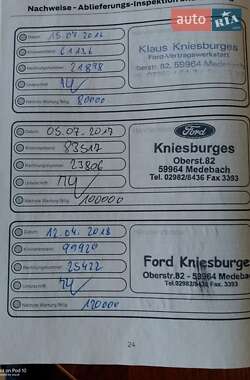 Nachweise - Ablieferungs-Inspektion
auto.ria.com
Datum 15.07.2016
Kilometerstand 61136
Rechnungsnummer 21878
Unterschrift
Nächste Wartung fällig 80000
Klaus Kniesburges
Ford-Vertragswerkstatt
Oberstr. 82, 59964 Medebach
Datum 05.07.2017
Kilometerstand 83517
Rechnungsnummer 23806
Unterschrift
Nächste Wartung fällig 100000
Ford
Kniesburges
Oberst.82
59964 Medebach
Tel. 02982/8436 Fax 3393
Datum 12.04.2018
Kilometerstand 99920
Rechnungsnummer 25422
Unterschrift
Nächste Wartung fällig 120000
Ford Kniesburges
Oberstr.82 - 59964 Medebach
Tel. 02982/8436 Fax 3393
24